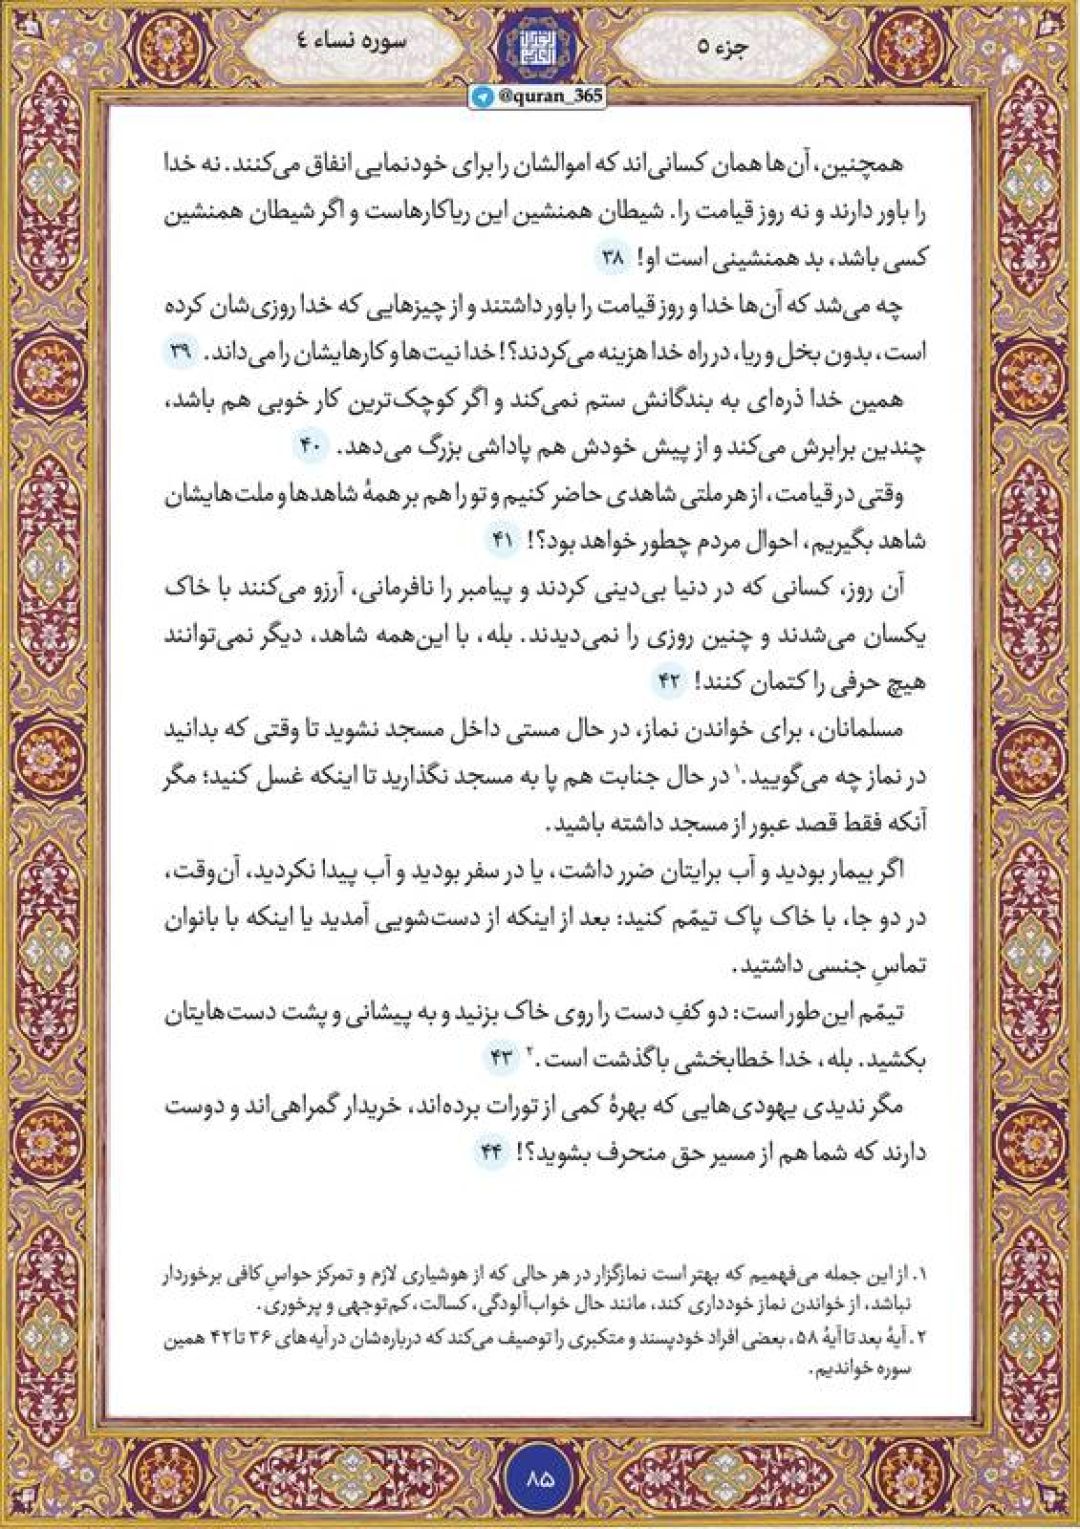 جزء ۵
سوره نساء ٤
@quran_365
همچنین، آن‌ها همان کسانی‌اند که اموالشان را برای خودنمایی انفاق می‌کنند. نه خدا
را باور دارند و نه روز قیامت را. شیطان همنشین این ریاکارهاست و اگر شیطان همنشین
کسی باشد، بد همنشینی است او! ۳۸
چه می‌شد که آن‌ها خدا و روز قیامت را باور داشتند و از چیزهایی که خدا روزی‌شان کرده
است، بدون بخل و ریا، در راه خدا هزینه می‌کردند؟! خدا نیت‌ها و کارهایشان را می‌داند. ۳۹
همین خدا ذره‌ای به بندگانش ستم نمی‌کند و اگر کوچک‌ترین کار خوبی هم باشد،
چندین برابرش می‌کند و از پیش خودش هم پاداشی بزرگ می‌دهد. ۴۰
وقتی در قیامت، از هر ملتی شاهدی حاضر کنیم و تو را هم بر همهٔ شاهدها و ملت‌هایشان
شاهد بگیریم، احوال مردم چطور خواهد بود؟! ۴۱
آن روز، کسانی که در دنیا بی‌دینی کردند و پیامبر را نافرمانی، آرزو می‌کنند با خاک
یکسان می‌شدند و چنین روزی را نمی‌دیدند. بله، با این‌همه شاهد، دیگر نمی‌توانند
هیچ حرفی را کتمان کنند! ۴۲
مسلمانان، برای خواندن نماز، در حال مستی داخل مسجد نشوید تا وقتی که بدانید
در نماز چه می‌گویید.۱ در حال جنابت هم پا به مسجد نگذارید تا اینکه غسل کنید؛ مگر
آنکه فقط قصد عبور از مسجد داشته باشید.
اگر بیمار بودید و آب برایتان ضرر داشت، یا در سفر بودید و آب پیدا نکردید، آن‌وقت،
در دو جا، با خاک پاک تیمّم کنید: بعد از اینکه از دست‌شویی آمدید یا اینکه با بانوان
تماسِ جنسی داشتید.
تیمّم این‌طور است: دو کفِ دست را روی خاک بزنید و به پیشانی و پشت دست‌هایتان
بکشید. بله، خدا خطابخشی باگذشت است.۲ ۴۳
مگر ندیدی یهودی‌هایی که بهرهٔ کمی از تورات برده‌اند، خریدار گمراهی‌اند و دوست
دارند که شما هم از مسیر حق منحرف بشوید؟! ۴۴
۱. از این جمله می‌فهمیم که بهتر است نمازگزار در هر حالی که از هوشیاری لازم و تمرکز حواسِ کافی برخوردار
نباشد، از خواندن نماز خودداری کند، مانند حال خواب‌آلودگی، کسالت، کم‌توجهی و پرخوری.
۲. آیهٔ بعد تا آیهٔ ۵۸، بعضی افراد خودپسند و متکبری را توصیف می‌کند که درباره‌شان در آیه‌های ۳۶ تا ۴۲ همین
سوره خواندیم.
۸۵